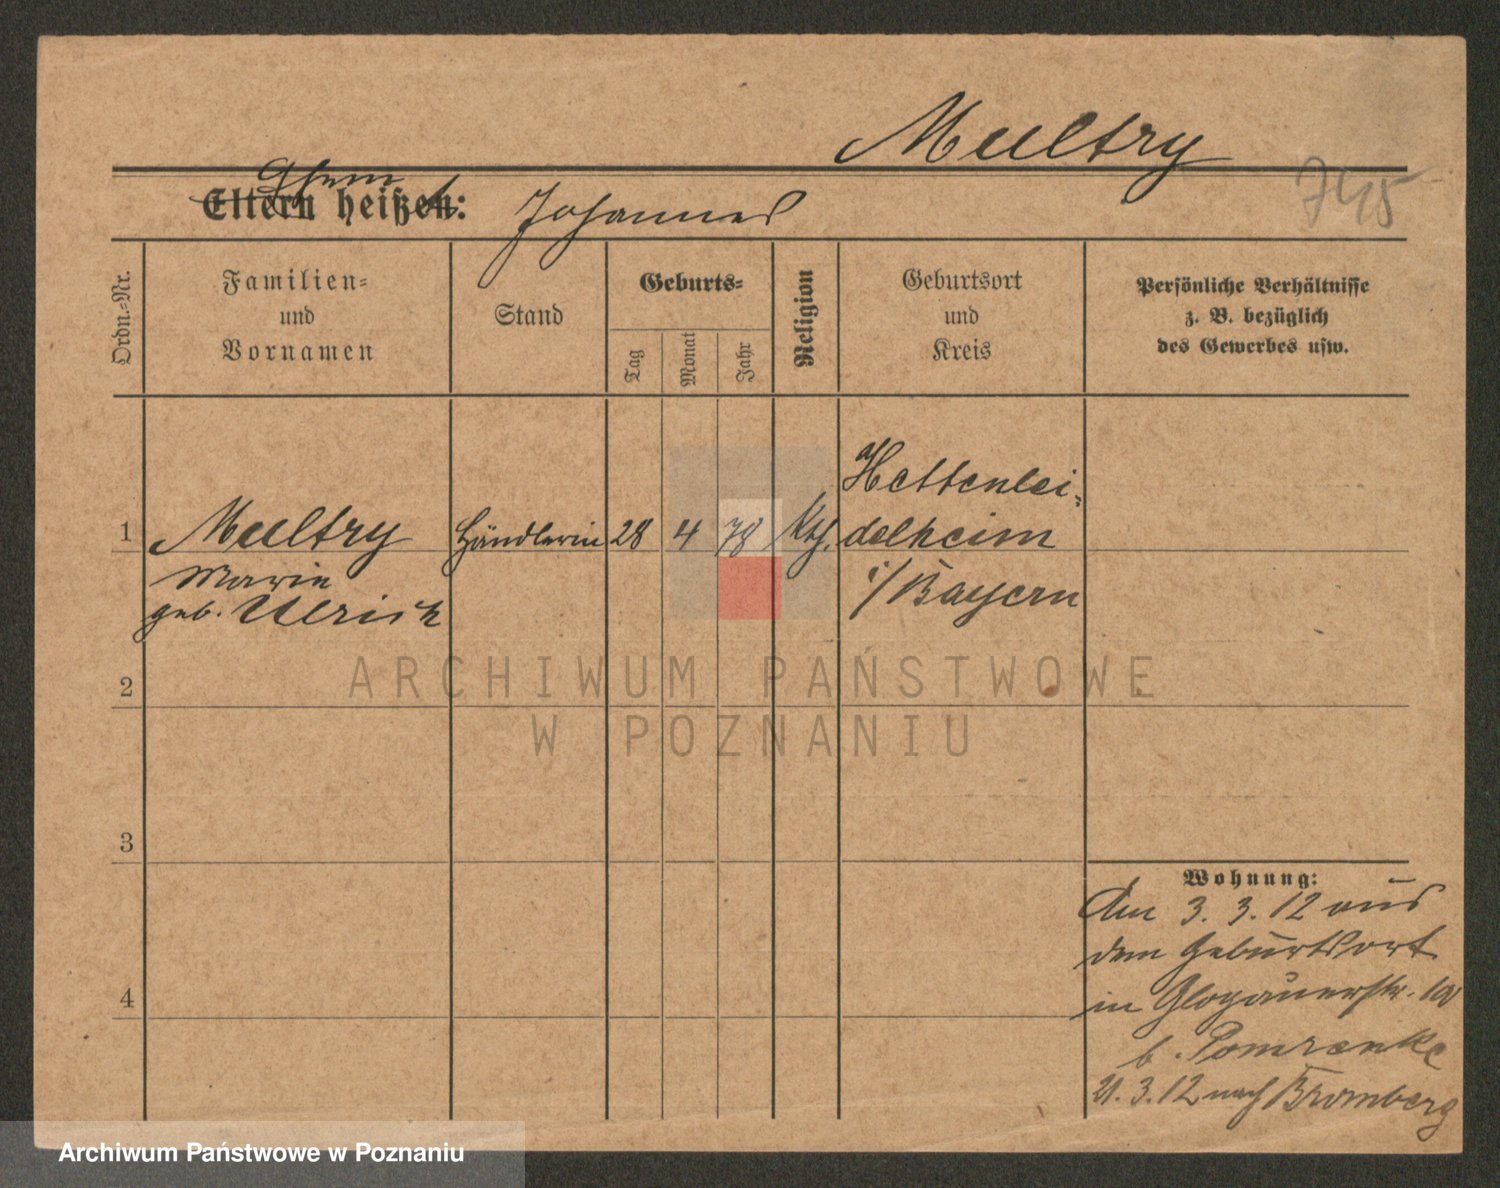 Multry
745
Ehem
Eltern heißen: Johannes
Ordn.-Nr.
Familien-
und
Vornamen
Stand
Geburts-
Tag
Monat
Jahr
Religion
Geburtsort
und
Kreis
Persönliche Verhältnisse
z. B. bezüglich
des Gewerbes usw.
1
Multry
Marie
geb. Ulrich
Händlerin
28
4
78
kth.
Hettenlei-
delheim
i/Bayern
2
3
4
ARCHIWUM PAŃSTWOWE
W POZNANIU
Wohnung:
Am 3. 3. 12 aus
dem Geburtsort
in Glogauerstr.
b. Pomrenke
21. 3. 12 nach Bromberg
Archiwum Państwowe w Poznaniu